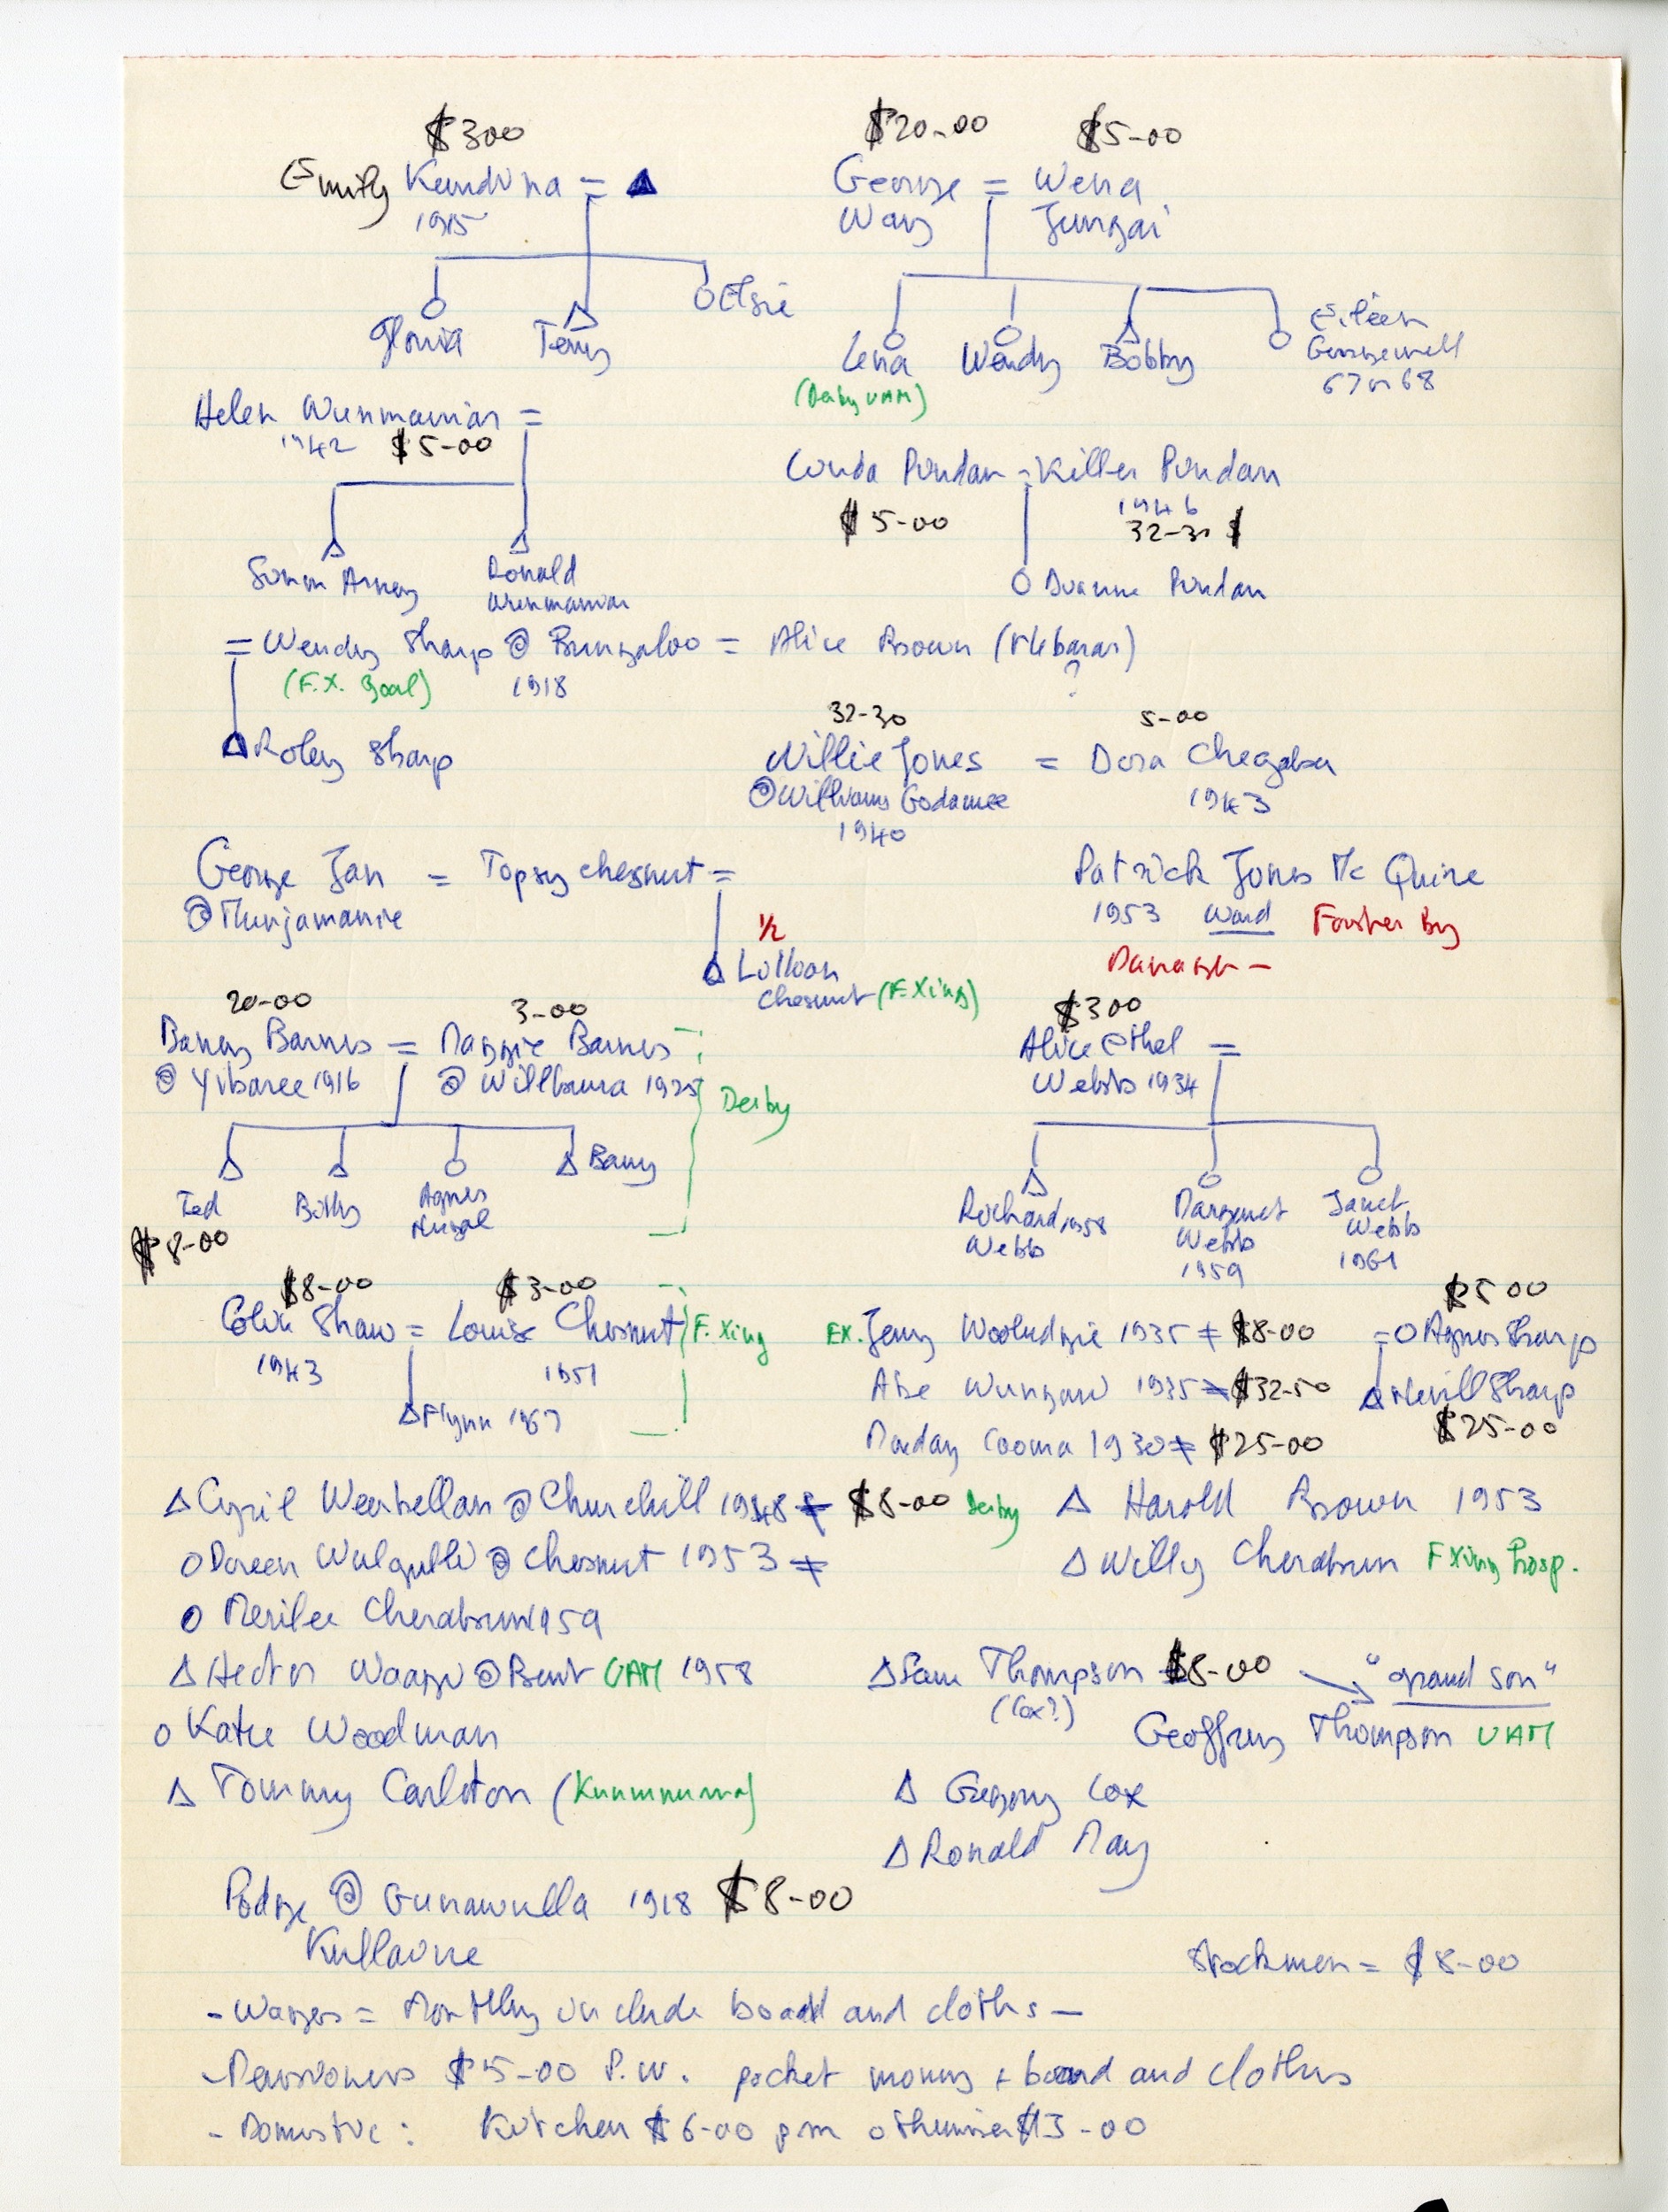 $300
Emily Kundina =
1915
Gloria
Terry
Elsie
$20-00 $5-00
George = Wena
Wary Jungai
Lena
(Derby UAM)
Wendy
Bobby
Eileen
67 or 68
Helen Wunmaurian =
1942 $5-00
Ronald
Conda Pundan = Killer Pundan
$5-00
1946
32-30 $
Pundan
= Wendy Sharp @ Bungaloo = Alice Brown
(F.X. Goal) 1918 ?
Roley Sharp
32-30 5-00
Willie Jones = Dora Chegaba
@ Williams Godamee 1943
1940
George Jan = Topsy Chesnut =
@ Munjamanie
1/2
Chesnut (F. Xing)
Patrick Jones Mc Quire
1953 Ward
20-00 3-00
Barney Barnes = Maggie Barnes
@ Yibaree 1916 @ Willbura 1925
Derby
Ted
$8-00
Billy
Agnes
Barry
$300
Alice Ethel =
Webb 1934
Richard 1958
Webb
Margaret
Webb
1959
Janet
Webb
1961
$8-00 $3-00
Colin Shaw = Louise Chesnut F. Xing
1943 1951
Flynn 1967
Ex. Jerry 1935 ≠ $8-00
Abe Wungaw 1935 ≠ $32-50
Monday Cooma 1930 ≠ $25-00
$5 00
= Agnes Sharp
Nevill Sharp
$25-00
Cyril Weabellan @ Churchill 1948 ≠ $8-00 Derby
Harold Brown 1953
Doreen Walgulli @ Chesnut 1953 ≠
Willy Cherabun F Xing Hosp.
Merilee Cherabun 1959
Hector @ Bent UAM 1958
Sam Thompson $8-00 "grand son"
(Cox?)
Geoffrey Thompson UAM
Katie Woodman
Tommy Carlton (Kununurra)
Gregory Cox
Ronald May
Podge @ Gunawulla 1918 $8-00
Kullarine
Stockmen = $8-00
- Wages = Monthly include board and cloths -
- Pensioners $5-00 P.W. pocket money + board and clothes
- Domestic: Kitchen $6-00 pm otherwise $3-00